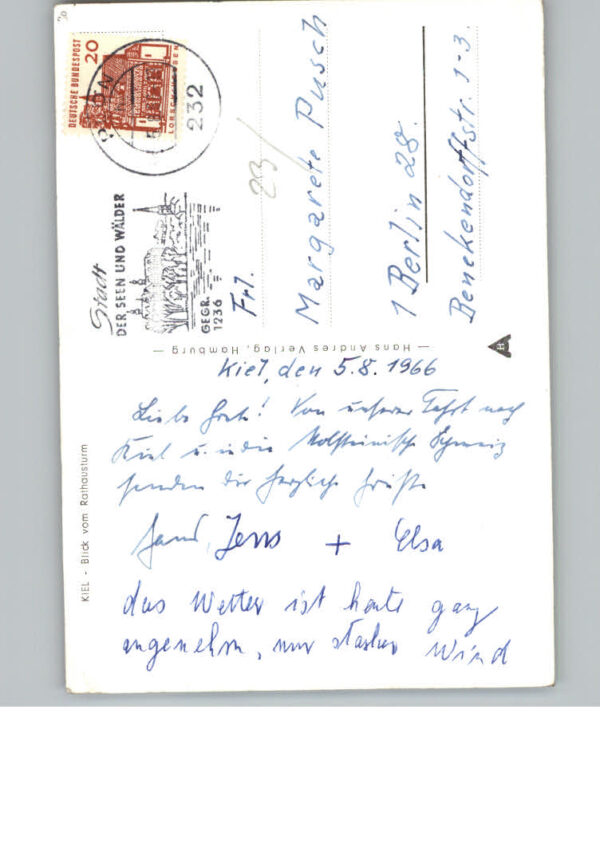 Kiel, den 5.8.1966
Liebe Gret! Von unserer Fahrt nach
Kiel u. in die Holsteinische Schweiz
senden dir herzliche Grüße
Jens + Elsa
das Wetter ist heute ganz
angenehm, nur starker Wind
KIEL - Blick vom Rathausturm
— Hans Andres Verlag, Hamburg —
H
DEUTSCHE BUNDESPOST
20
LORSCH
232
Stadt
DER SEEN UND WÄLDER
GEGR.
1236
23/
Frl.
Margarete Pusch
1 Berlin 28.
Benekendorffstr. 1-3.